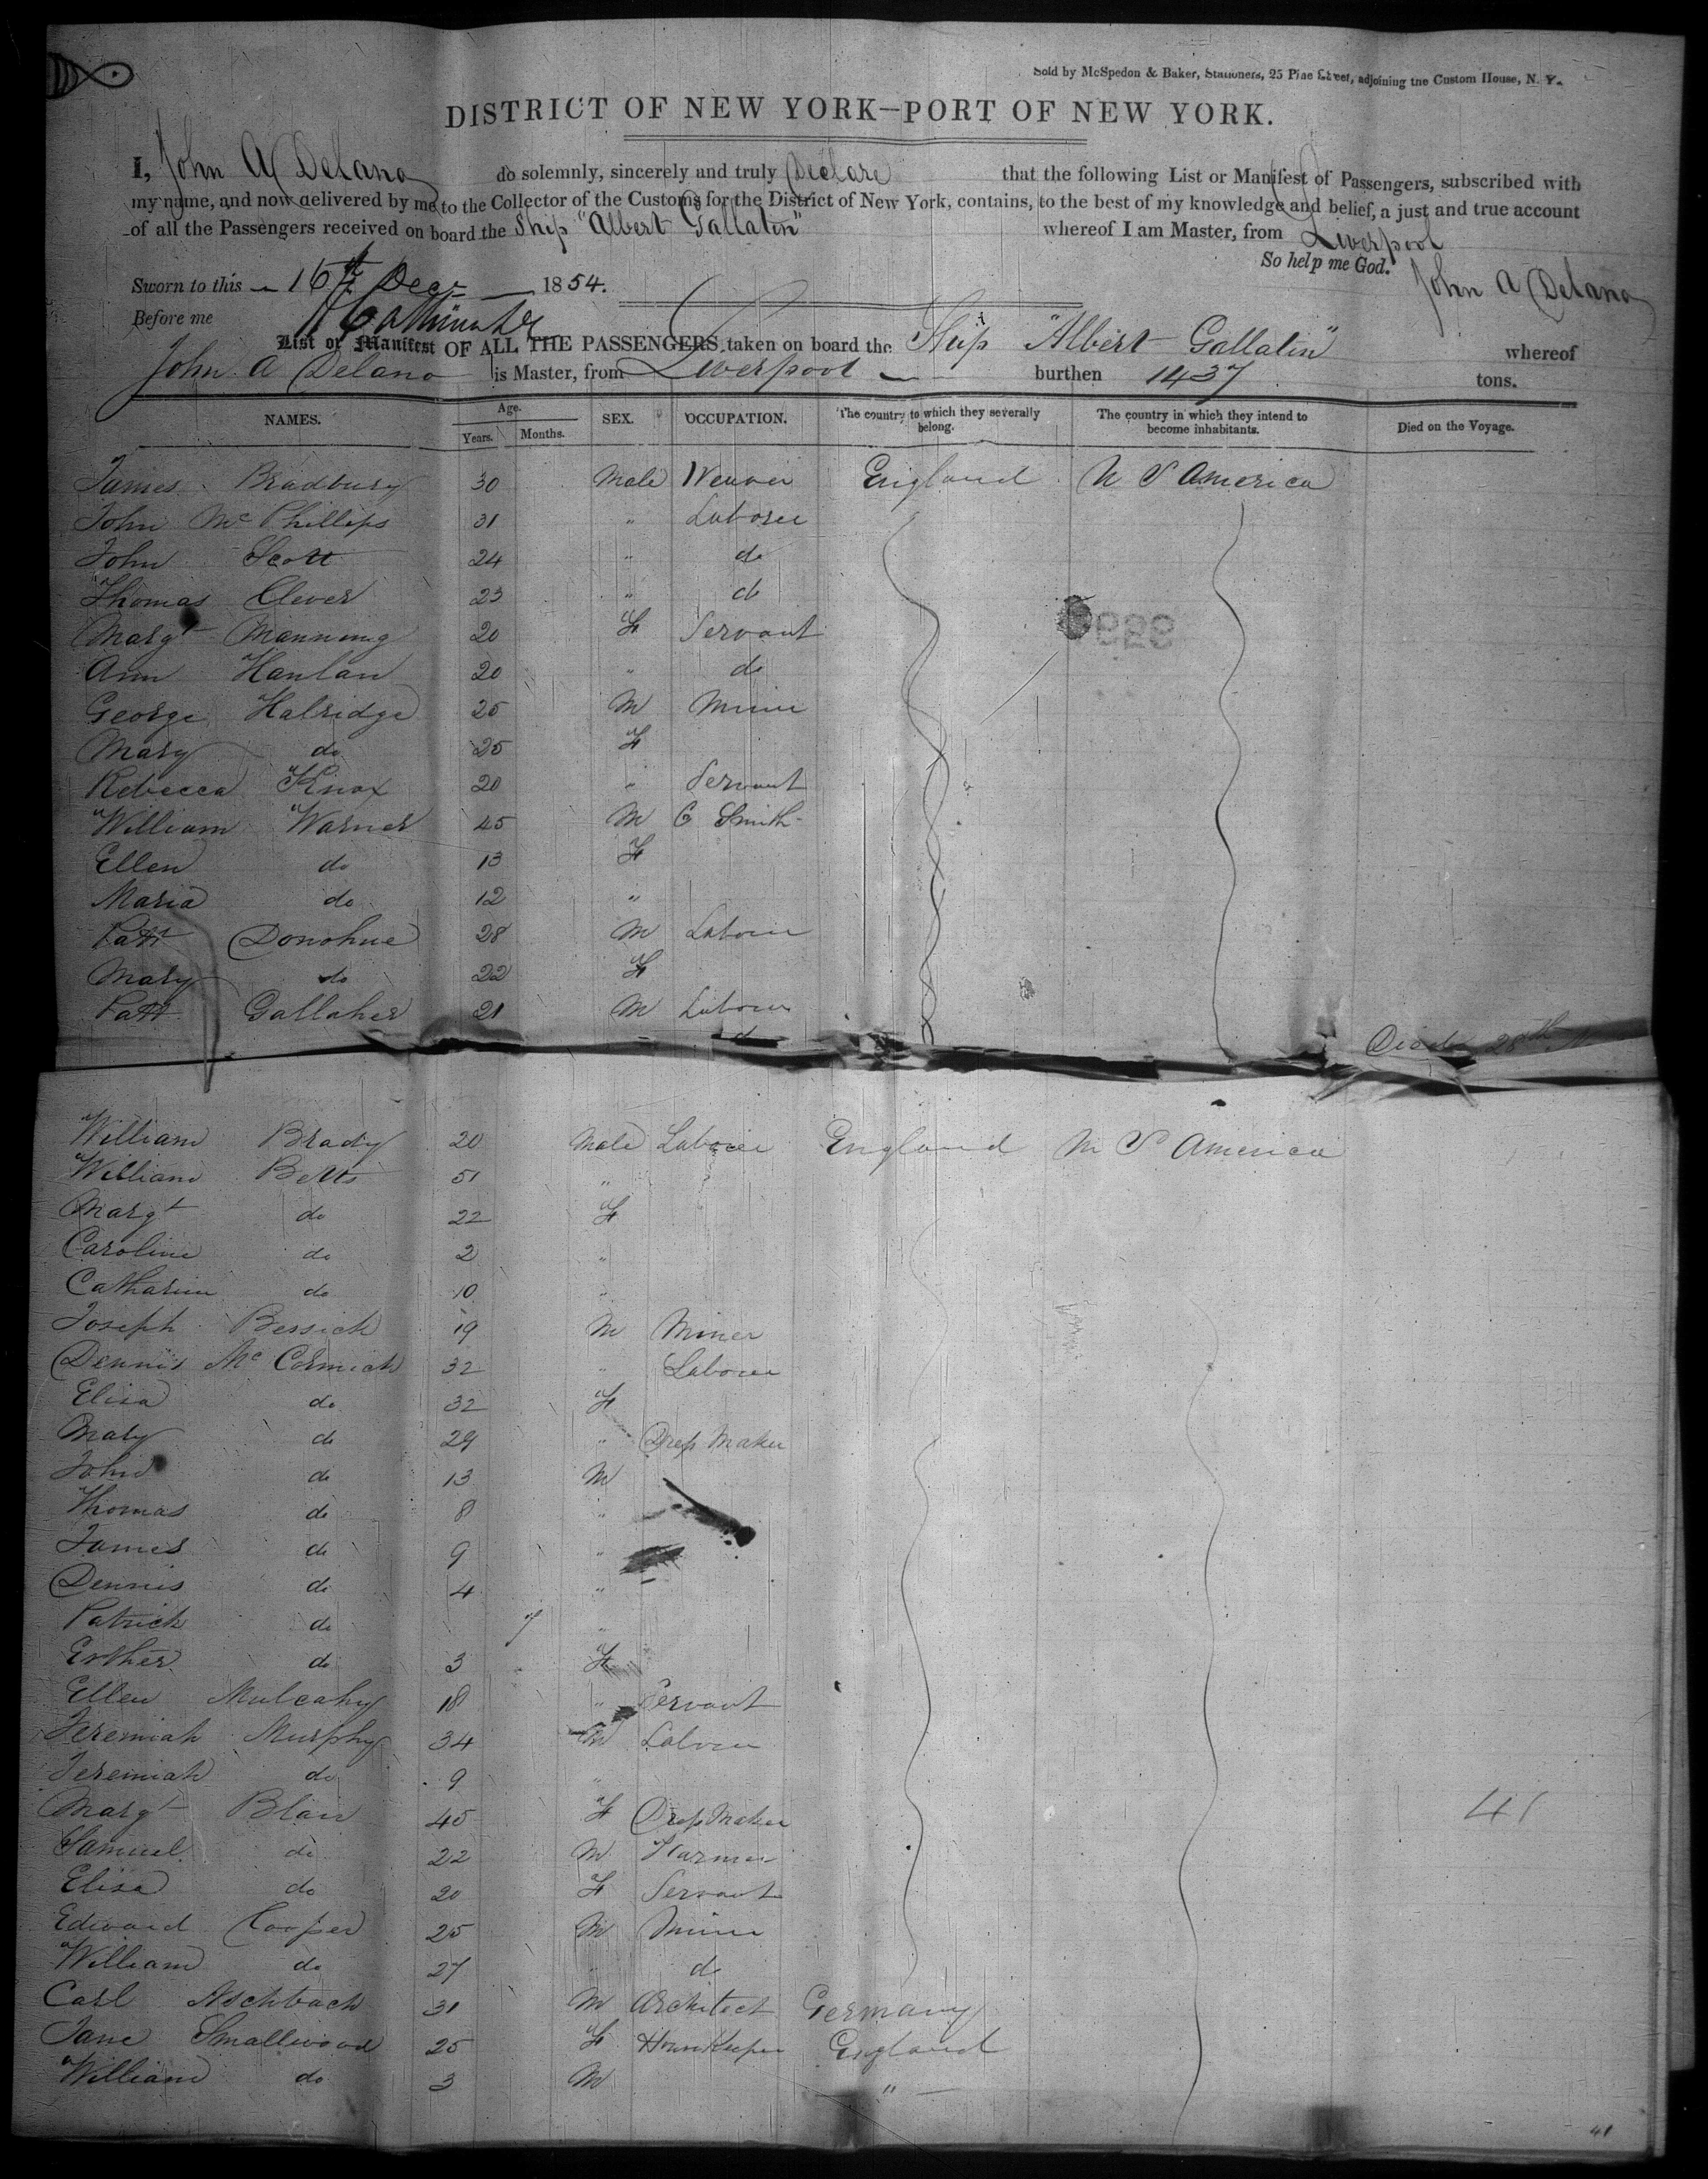 Sold by McSpedon & Baker, Stationers, 25 Pine Street, adjoining the Custom House, N. Y.
DISTRICT OF NEW YORK—PORT OF NEW YORK.
I, John A Delano do solemnly, sincerely and truly Declare that the following List or Manifest of Passengers, subscribed with
my name, and now delivered by me to the Collector of the Customs for the District of New York, contains, to the best of my knowledge and belief, a just and true account
of all the Passengers received on board the Ship "Albert Gallatin" whereof I am Master, from Liverpool
So help me God. John A Delano
Sworn to this 16th Decr 1854.
Before me
List or Manifest OF ALL THE PASSENGERS taken on board the Ship "Albert Gallatin" whereof
John A Delano is Master, from Liverpool burthen 1437 tons.
NAMES. Age. Years. Months. SEX. OCCUPATION. The country to which they severally belong. The country in which they intend to become inhabitants. Died on the Voyage.
James Bradbury 30 Male Weaver England U S America
John Mc Phillips 31 " Laborer
John Scott 24 " do
Thomas Clever 23 " do
Margt Manning 20 F Servant
Ann Hanlan 20 " do
George Halridge 25 M Miner
Mary do 25 F
Rebecca Knox 20 " Servant
William Warner 45 M G Smith
Ellen do 13 F
Maria do 12 "
Patt Donohue 28 M Laborer
Mary do 22 F
Patt Gallaher 21 M Laborer
d Died 28th
William Brady 20 Male Laborer England U S America
William Betts 51 "
Margt do 22 F
Caroline do 2 "
Catharine do 10 "
Joseph Bessick 19 M Miner
Dennis Mc Cormick 32 " Laborer
Eliza do 32 F
Mary do 29 " Dress Maker
John do 13 M
Thomas do 8 "
James do 9 "
Dennis do 4 "
Patrick do 7 "
Esther do 3 F
Ellen Mulcahy 18 " Servant
Jeremiah Murphy 34 M Laborer
Jeremiah do 9 "
Margt Blair 45 F Dress Maker 41
Samuel do 22 M Farmer
Eliza do 20 F Servant
Edward Cooper 25 M Miner
William do 27 " do
Carl Aschbach 31 M Architect Germany
Jane Smallwood 25 F House Keeper England
William do 3 M "
41